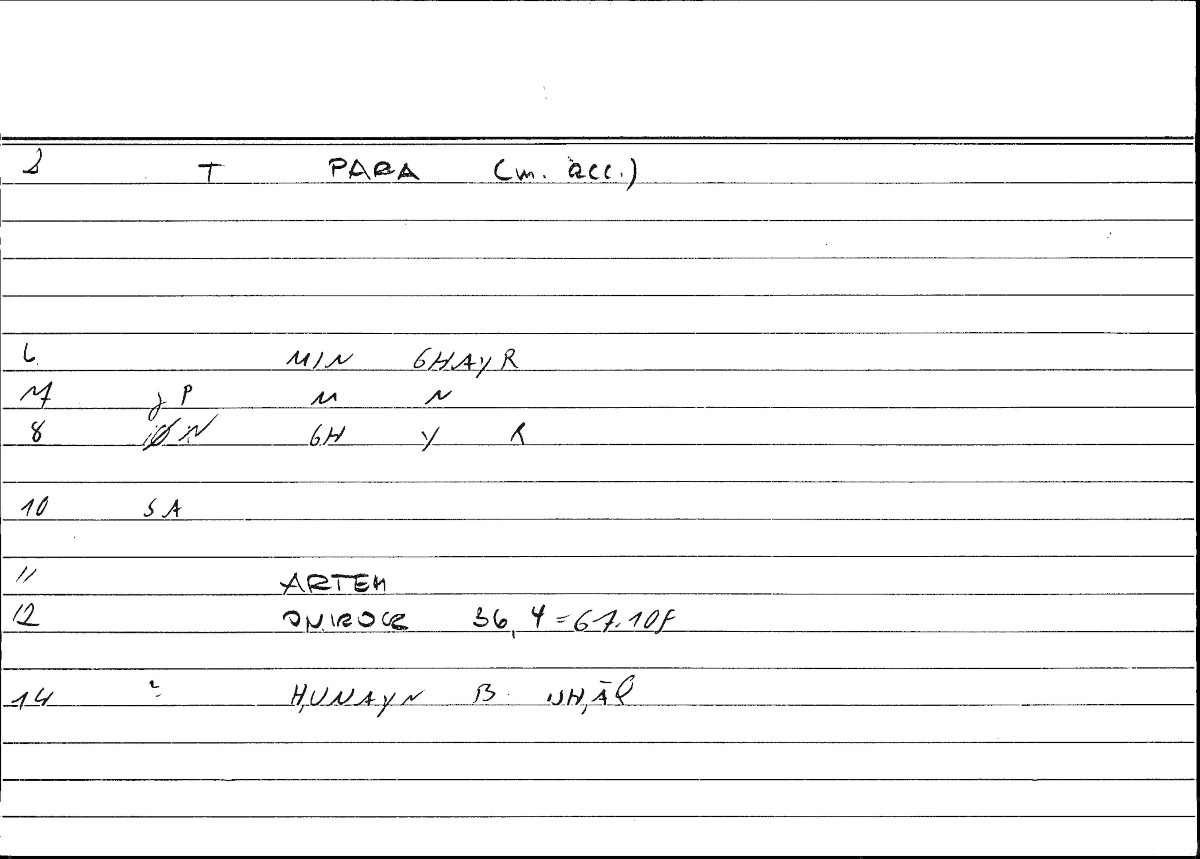 2 T PARA (m. acc.)
6 MIN GHAYR
7 P M N
8 GH Y R
10 SA
11 ARTEM
12 ONIROCR 36, 4 = 67.10f
14 H,UNAYN B